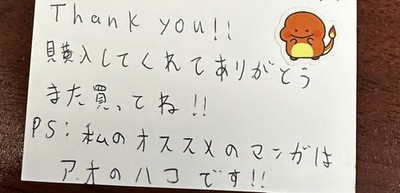 Thank you!!
買購入してくれてありがとう
また買ってね!!
PS:私のオススメのマンガは
アオのハコです!!